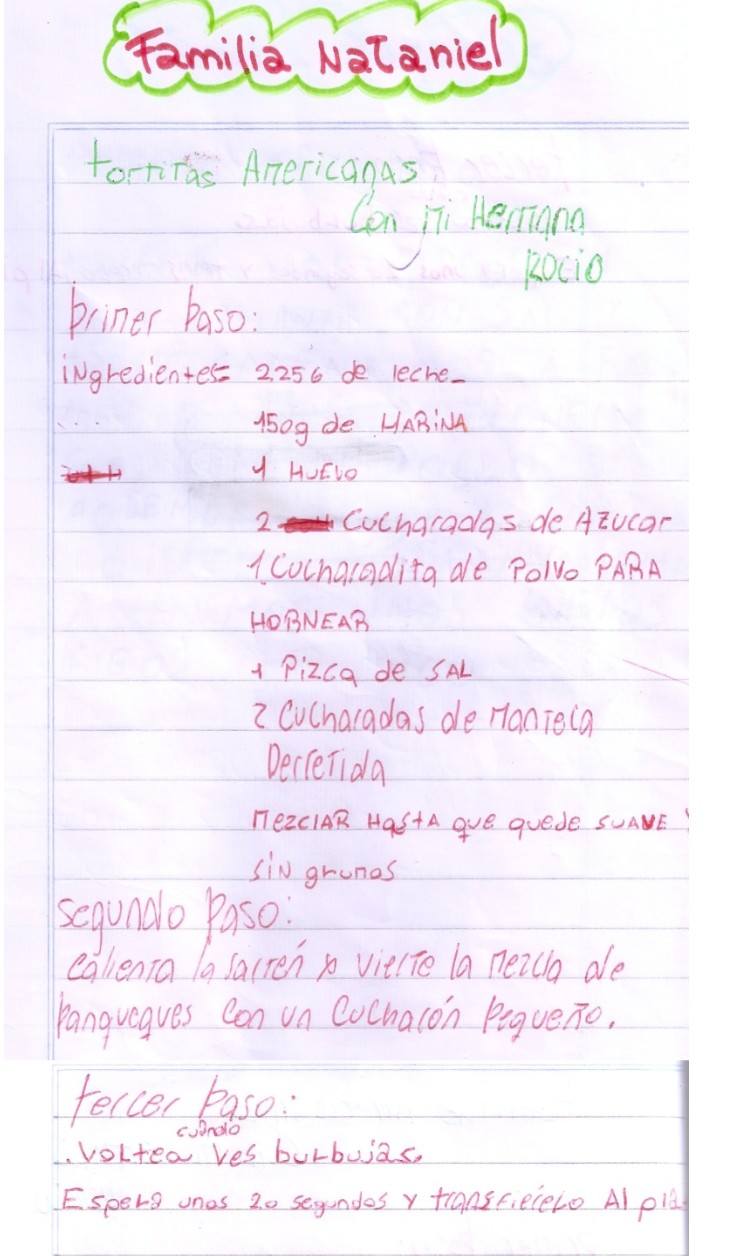 Familia Nataniel
tortitas Americanas
Con mi Hermana
Rocio
Primer Paso:
ingredientes= 2256 de leche_
150g de HARiNA
1 HUEVO
2 Cucharadas de Azucar
1 Cucharadita de Polvo PARA
HORNEAR
1 Pizca de SAL
2 Cucharadas de Manteca
Derretida
MEZCLAR HAStA que quede SUAVE Y
SiN grumos
segundo Paso:
calienta la sarten y vierte la mezcla de
Panqueques Con un Cucharón Pequeño.
tercer Paso:
cuando
.Voltea Ves burbujas.
Espera unos 20 segundos y transfierelo Al